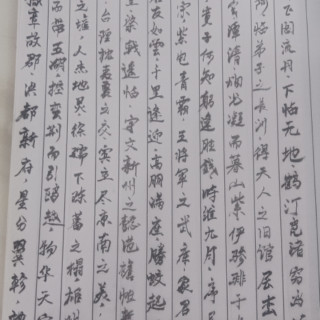 章故郡·洪都新府·星分翼轸·
而带五湖·控蛮荆而引瓯越·物华天宝
之墟·人杰地灵·徐孺下陈蕃之榻·雄州
台隍枕夷夏之交·宾主尽东南之美·
棨戟遥临·宇文新州之懿范·襜帷暂
友如云·千里逢迎·高朋满座·腾蛟起
宗·紫电青霜·王将军之武库·家君
童子何知·躬逢胜饯·时维九月·序属
寒潭清·烟光凝而暮山紫·俨骖騑于
临帝子之长洲·得天人之旧馆·层
飞阁流丹·下临无地·鹤汀凫渚·穷岛